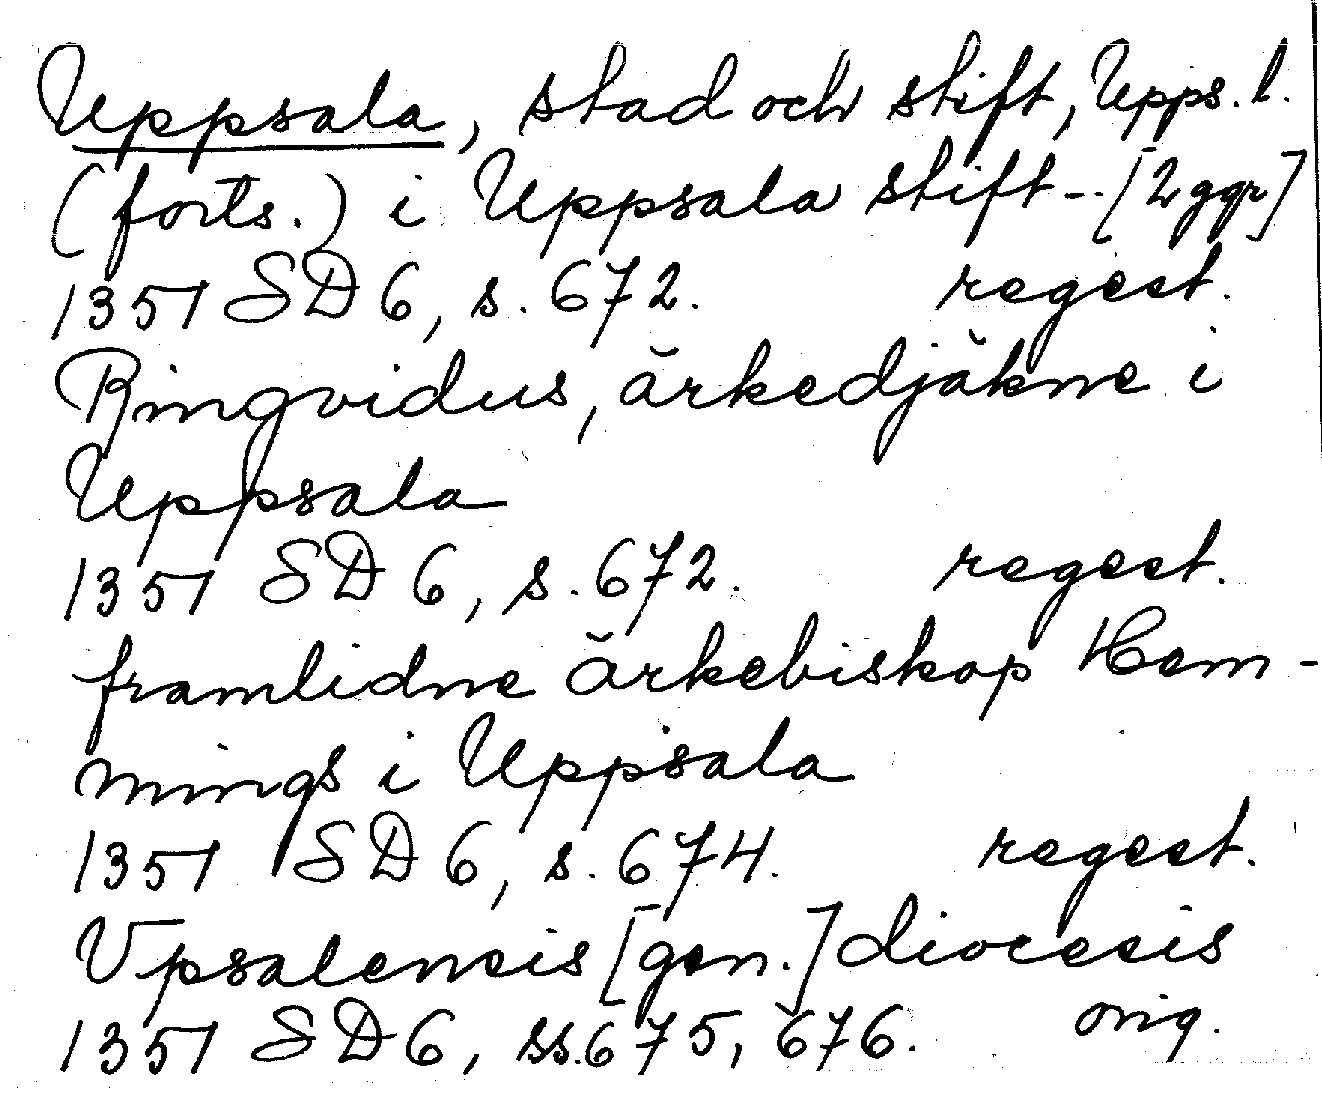 Uppsala, stad och stift, Upps. l.
(forts.) i Uppsala stift -- [2 ggr]
1351 SD 6, s. 672. regest.
Ringvidus, ärkedjäkne i
Uppsala
1351 SD 6, s. 672. regest.
framlidne ärkebiskop Hem-
mings i Uppsala
1351 SD 6, s. 674. regest.
Vpsalensis [gen.] diocesis
1351 SD 6, ss. 675, 676. orig.